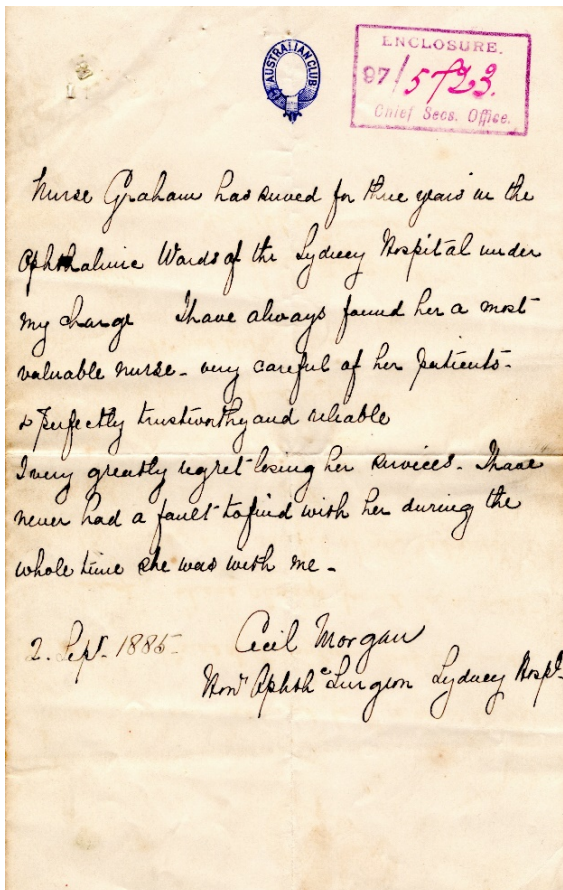 AUSTRALIAN CLUB
ENCLOSURE.
97/5723.
Chief Secs. Office.
Nurse Graham has served for three years in the
Ophthalmic Wards of the Sydney Hospital under
my charge I have always found her a most
valuable nurse - very careful of her patients -
& perfectly trustworthy and reliable
I very greatly regret losing her services - I have
never had a fault to find with her during the
whole time she was with me -
2. Sept. 1885 Cecil Morgan
Hony Ophthc Surgeon Sydney Hospl.